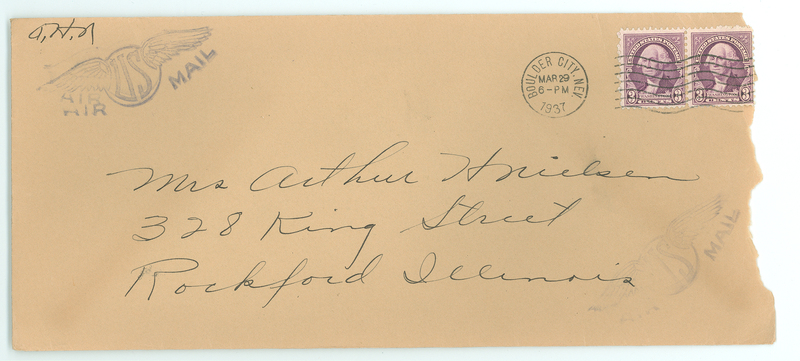 a.H.N
US
AIR MAIL
AIR
BOULDER CITY, NEV.
MAR 29
6-PM
1937
UNITED STATES POSTAGE
3 3
CENTS
UNITED STATES POSTAGE
3 3
CENTS
Mrs Arthur H Nielsen
328 King Street
Rockford Illinois
US
MAIL